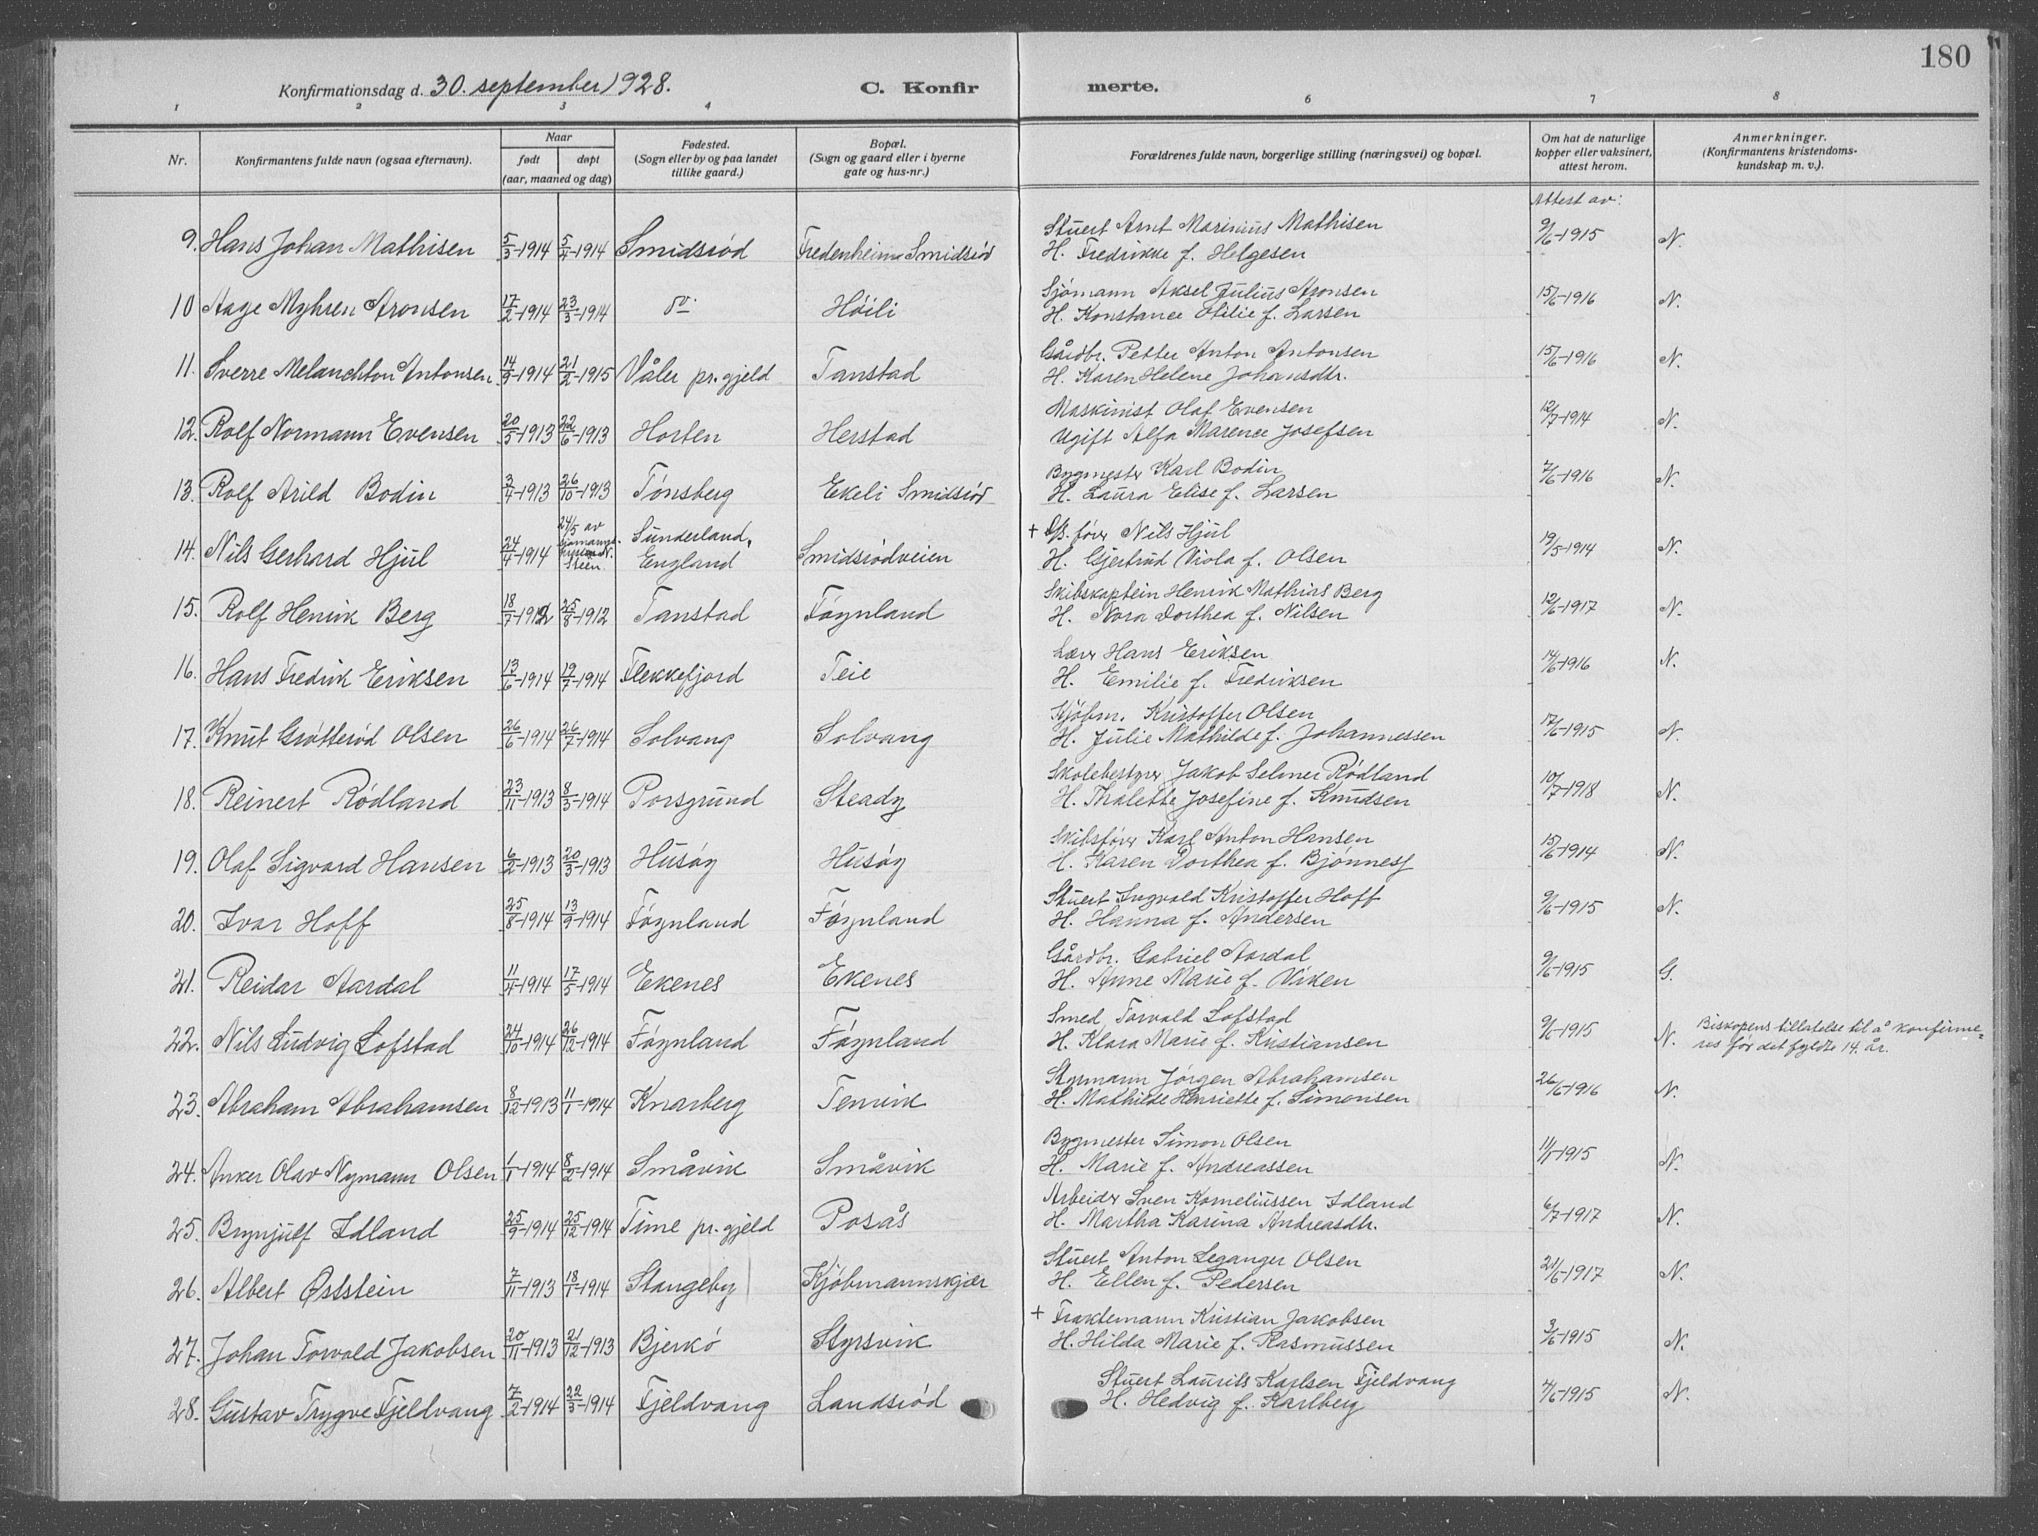 180
Konfirmationsdag d. 30. september 1928. C. Konfir merte.
1 2 3 4 6 7 8
Nr. Konfirmantens fulde navn (ogsaa efternavn). Naar født døpt (aar, maaned og dag) Fødested. (Sogn eller by og paa landet tillike gaard.) Bopæl. (Sogn og gaard eller i byerne gate og hus-nr.) Forældrenes fulde navn, borgerlige stilling (næringsvei) og bopæl. Om hat de naturlige kopper eller vaksinert, attest herom. Anmerkninger. (Konfirmantens kristendomskundskap m. v.).
Attest av:
9. Hans Johan Mathisen 5/3-1914 5/4-1914 Smidsrød Fredenheim Smidsrød Stuert Arnt Marinius Mathisen 9/6-1915 N.
H. Fredrikke f. Helgesen
10 Aage Myhren Aronsen 17/2-1914 23/3-1914 do Høili Sjømann Aksel Julius Aronsen 15/6-1916 N.
H. Konstance Otilie f. Larsen
11. Sverre Melanchton Antonsen 14/9-1914 21/2-1915 Våler pr.gjeld Tanstad Gårdbr. Petter Anton Antonsen 15/6-1916 N.
H. Karen Helene Johansdtr.
12. Rolf Normann Evensen 20/5-1913 22/6-1913 Horten Herstad Maskinist Olaf Evensen 12/7-1914 N.
Ugift Alfa Marence Josefsen
13. Rolf Arild Bodin 3/4-1913 26/10-1913 Tønsberg Ekeli Smidsrød Bygmester Karl Bodin 7/6-1916 N.
H. Laura Elise f. Larsen
14. Nils Gerhard Hjul 24/4-1914 24/5 av sjømannspresten N. Steen Sunderland, England Smidsrødveien + D/s. fører Nils Hjul 19/5-1914 N.
H. Gjertrud Viola f. Olsen
15. Rolf Henrik Berg 18/7-1912 25/8-1912 Tanstad Føynland Skibskaptein Henrik Mathias Berg 12/6-1917 N.
H. Nora Dorthea f. Nilsen
16. Hans Fredrik Eriksen 13/6-1914 19/7-1914 Flekkefjord Teie Lærer Hans Eriksen 14/6-1916 N.
H. Emilie f. Fredriksen
17. Knut Grøtterød Olsen 26/6-1914 26/7-1914 Solvang Solvang Kjøbm. Kristoffer Olsen 17/6-1915 N.
H. Julie Mathilde f. Johannessen
18. Reinert Rødland 23/11-1913 8/3-1914 Porsgrund Steady Skolebestyrer Jakob Selmer Rødland 10/7-1918 N.
H. Thalette Josefine f. Knudsen
19. Olaf Sigvard Hansen 6/2-1913 20/3-1913 Husøy Husøy Skibsfører Karl Anton Hansen 15/6-1914 N.
H. Karen Dorthea f. Bjønnes
20. Ivar Hoff 25/8-1914 13/9-1914 Føynland Føynland Stuert Ingvald Kristoffer Hoff 9/6-1915 N.
H. Hanna f. Andersen
21. Reidar Aardal 11/4-1914 17/5-1914 Ekenes Ekenes Gårdbr. Gabriel Aardal 9/6-1915 G.
H. Anne Marie f. Viken
22. Nils Ludvig Lofstad 24/10-1914 26/12-1914 Føynland Føynland Smed Torvald Lofstad 9/6-1915 N. Biskopens tillatelse til å konfirme=
res før det fyldte 14. år.
H. Klara Marie f. Kristiansen
23. Abraham Abrahamsen 8/12-1913 11/1-1914 Knarberg Tenvik Styrmann Jørgen Abrahamsen 26/6-1916 N.
H. Mathilde Henriette f. Simonsen
24. Anker Olav Nymann Olsen 1/1-1914 8/2-1914 Småvik Småvik Bygmester Simon Olsen 11/6-1915 N.
H. Marie f. Andreassen
25. Brynjulf Idland 25/9-1914 25/12-1914 Time pr.gjeld Posås Arbeider Sven Korneliussen Idland 6/7-1917 N.
H. Martha Karina Andreasdtr.
26. Albert Øststein 7/11-1913 18/1-1914 Stangeby Kjøbmannskjær Stuert Anton Leganger Olsen 21/6-1917 N.
H. Ellen f. Pedersen
27. Johan Torvald Jakobsen 20/11-1913 21/12-1913 Bjerkø Styrsvik + Fraktemann Kristian Jakobsen 3/6-1915 N.
H. Hilda Marie f. Rasmussen
28. Gustav Trygve Fjeldvang 7/2-1914 22/3-1914 Fjeldvang Landsrød Stuert Laurits Karlsen Fjeldvang 4/6-1915 N.
H. Hedvig f. Karlberg